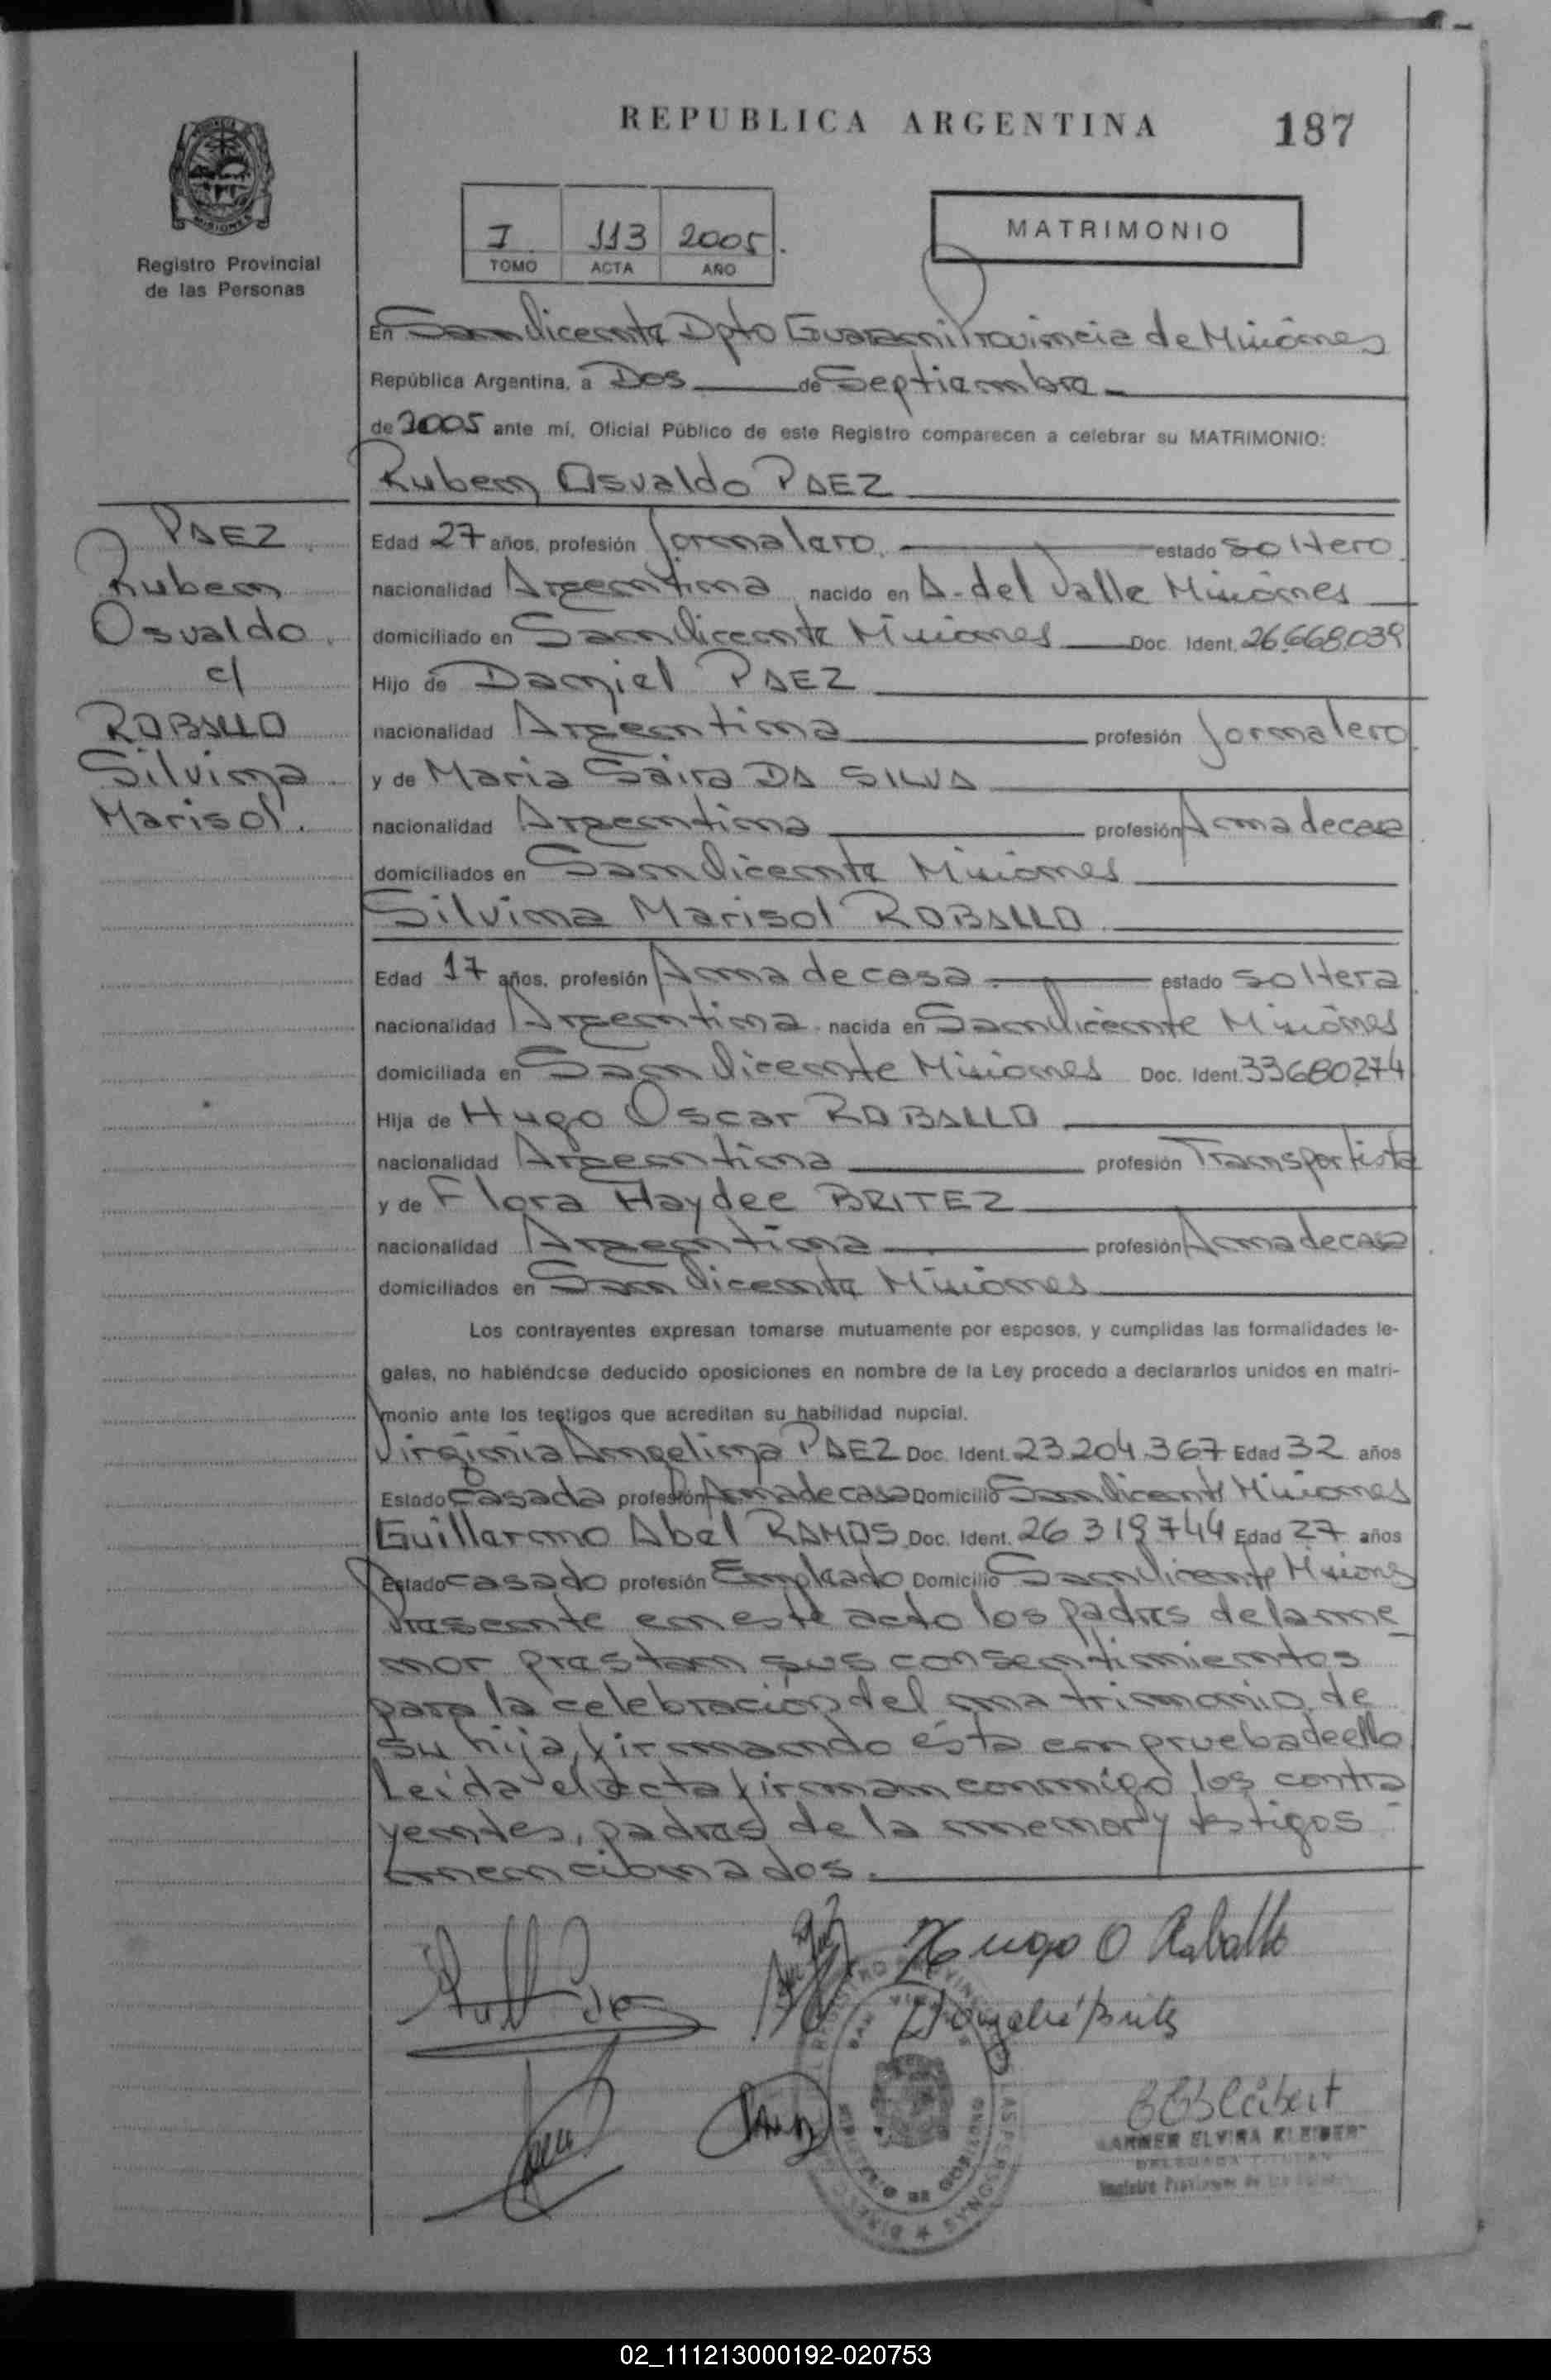 REPUBLICA ARGENTINA 187
MISIONES
Registro Provincial
de las Personas
I. 113 2005.
TOMO ACTA AÑO
MATRIMONIO
En San Vicente Dpto Guarani Provincia de Misiones
República Argentina, a Dos de Septiembre
de 2005 ante mí, Oficial Público de este Registro comparecen a celebrar su MATRIMONIO:
Ruben Osvaldo PAEZ
PAEZ
Ruben
Osvaldo.
c/
ROBALLO
Silvina
Marisol.
Edad 27 años, profesión Jornalero. estado soltero.
nacionalidad Argentina nacido en A. del Valle Misiones
domiciliado en San Vicente Misiones Doc. Ident. 26.668.039
Hijo de Daniel PAEZ
nacionalidad Argentina profesión Jornalero.
y de Maria Saira DA SILVA
nacionalidad Argentina profesión Ama de casa
domiciliados en San Vicente Misiones
Silvina Marisol ROBALLO
Edad 17 años, profesión Ama de casa. estado soltera.
nacionalidad Argentina. nacida en San Vicente Misiones
domiciliada en San Vicente Misiones Doc. Ident. 33680274
Hija de Hugo Oscar ROBALLO
nacionalidad Argentina profesión Transportista
y de Flora Haydee BRITEZ
nacionalidad Argentina profesión Ama de casa.
domiciliados en San Vicente Misiones
Los contrayentes expresan tomarse mutuamente por esposos, y cumplidas las formalidades le-
gales, no habiéndose deducido oposiciones en nombre de la Ley procedo a declararlos unidos en matri-
monio ante los testigos que acreditan su habilidad nupcial.
Virginia Angelina PAEZ Doc. Ident. 23204367 Edad 32 años
Estado casada profesión Ama de casa Domicilio San Vicente Misiones
Guillermo Abel RAMOS Doc. Ident. 26319744 Edad 27 años
Estado casado profesión Empleado Domicilio San Vicente Misiones
Presente en este acto los padres de la me-
nor prestan sus consentimientos
para la celebración del matrimonio de
su hija, firmando ésta en prueba de ello
Leida el acta firman conmigo los contra-
yentes, padres de la menor y testigos
mencionados.
Hugo O Roballo
CARMEN ELVIRA KLEIBERT
DELEGADA TITULAR
Registro Provincial de las Personas
02_111213000192-020753